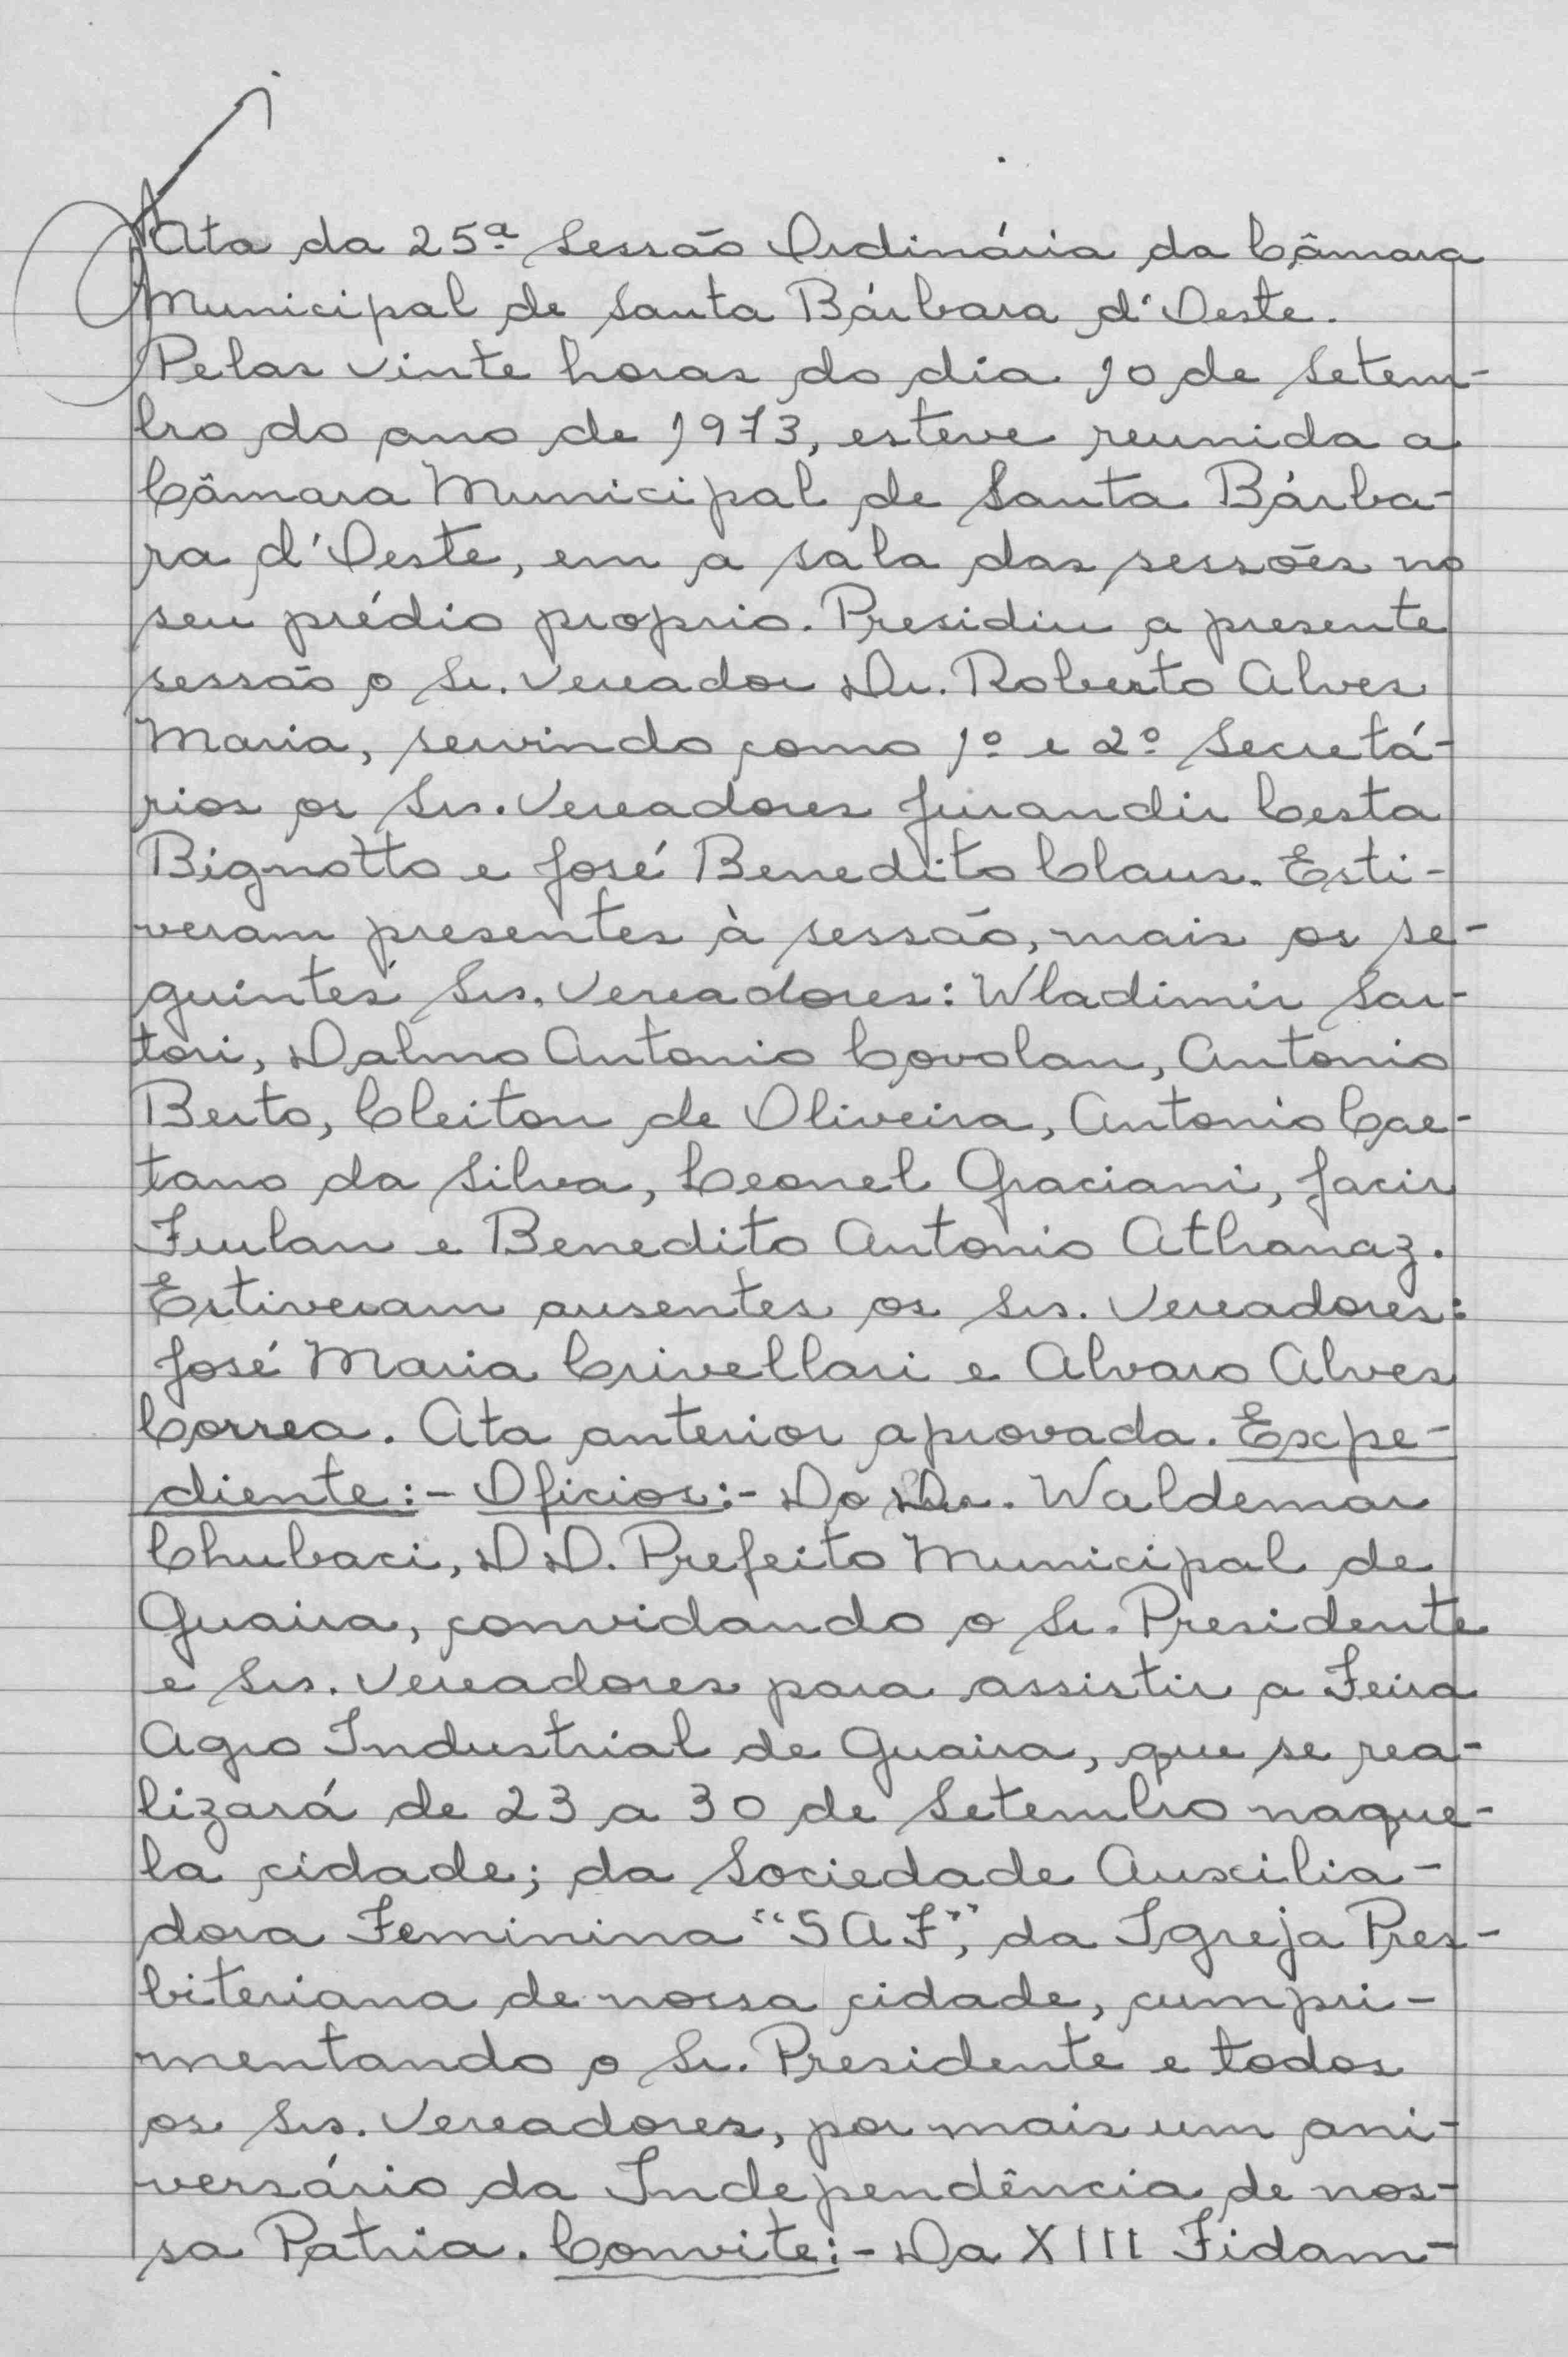 Ata da 25ª Sessão Ordinária da Câmara
Municipal de Santa Bárbara d'Oeste.
Pelas vinte horas do dia 10 de Setem-
bro do ano de 1973, esteve reunida a
Câmara Municipal de Santa Bárba-
ra d'Oeste, em a sala das sessões no
seu prédio proprio. Presidiu a presente
sessão o Sr. Vereador Dr. Roberto Alves
Maria, servindo como 1º e 2º Secretá-
rios os Srs. Vereadores Jurandir Cesta
Bignotto e José Benedito Claus. Esti-
veram presentes à sessão, mais os se-
guintes Srs. Vereadores: Wladimir Sar-
tori, Dalmo Antonio Covolan, Antonio
Berto, Cleiton de Oliveira, Antonio Cae-
tano da Silva, Leonel Graciani, Jacir
Furlan e Benedito Antonio Athanaz.
Estiveram ausentes os Srs. Vereadores:
José Maria Crivellari e Alvaro Alves
Correa. Ata anterior aprovada. Expe-
diente:- Oficios:- Do Dr. Waldemar
Chubaci, DD. Prefeito Municipal de
Guaira, convidando o Sr. Presidente
e Srs. Vereadores para assistir a Feira
Agro Industrial de Guaira, que se rea-
lizará de 23 a 30 de Setembro naque-
la cidade; da Sociedade Auxilia-
dora Feminina "SAF", da Igreja Pres-
biteriana de nossa cidade, cumpri-
mentando o Sr. Presidente e todos
os Srs. Vereadores, por mais um ani-
versário da Independência de nos-
sa Patria. Convite:- Da XIII Fidam-